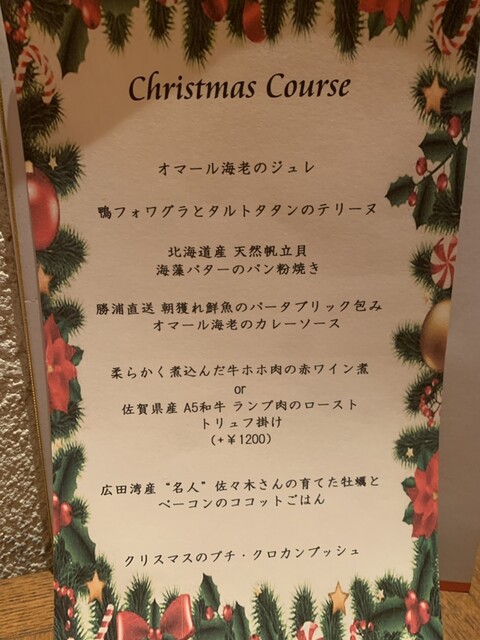 Christmas Course
オマール海老のジュレ
鴨フォワグラとタルトタタンのテリーヌ
北海道産 天然帆立貝
海藻バターのパン粉焼き
勝浦直送 朝獲れ鮮魚のパータブリック包み
オマール海老のカレーソース
柔らかく煮込んだ牛ホホ肉の赤ワイン煮
or
佐賀県産 A5和牛 ランプ肉のロースト
トリュフ掛け
(+¥1200)
広田湾産“名人”佐々木さんの育てた牡蠣と
ベーコンのココットごはん
クリスマスのプチ・クロカンブッシュ